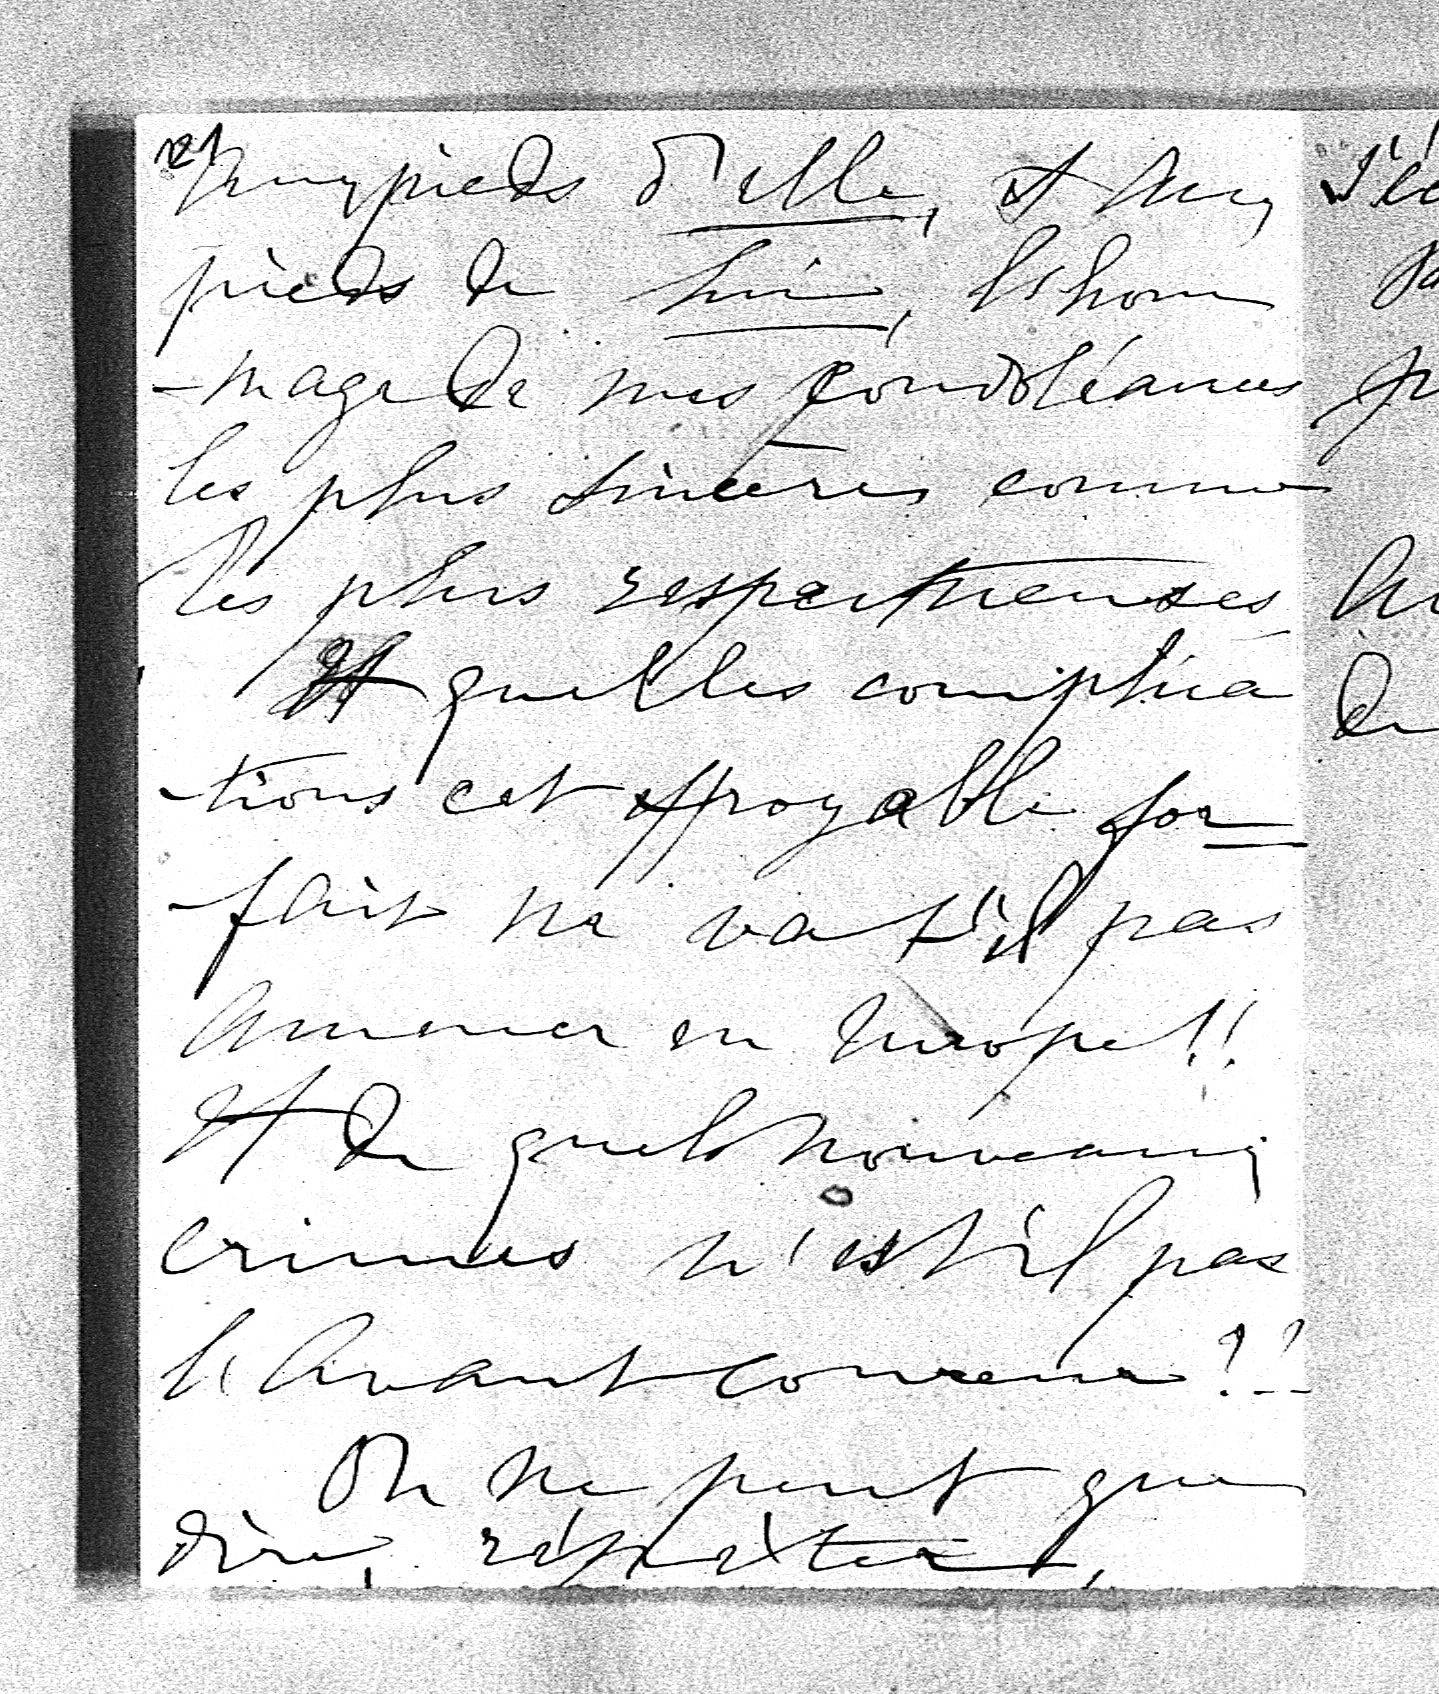 aux pieds d'elle, et aux
pieds de lui, l'hom
-mage de mes condoléances
les plus sincères comme
les plus respectueuses
Et quelles complica
-tions cet effroyable for
-fait ne va t'il pas
amener en Europe!!
Et de quels nouveaux
crimes n'est'il pas
l'avant coureur?!
On ne peut que
dire, répéter,